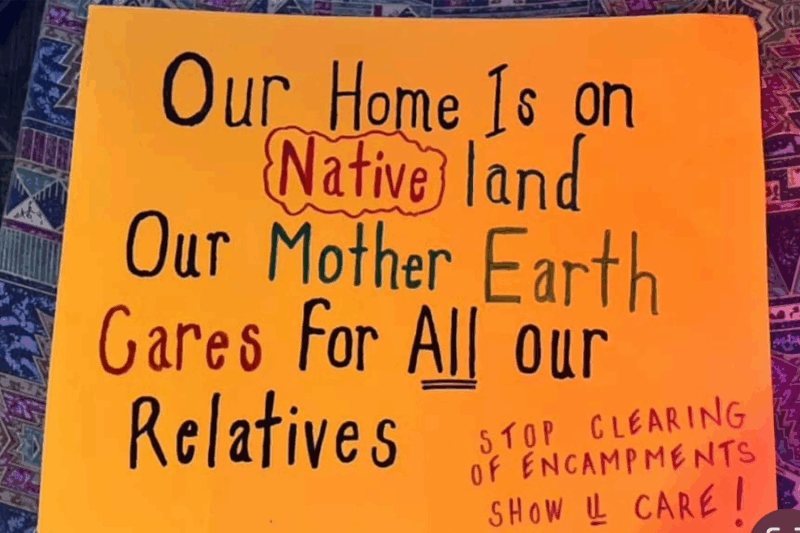 Our Home Is on
Native land
Our Mother Earth
Cares For All our
Relatives
STOP CLEARING
OF ENCAMPMENTS
SHOW U CARE!